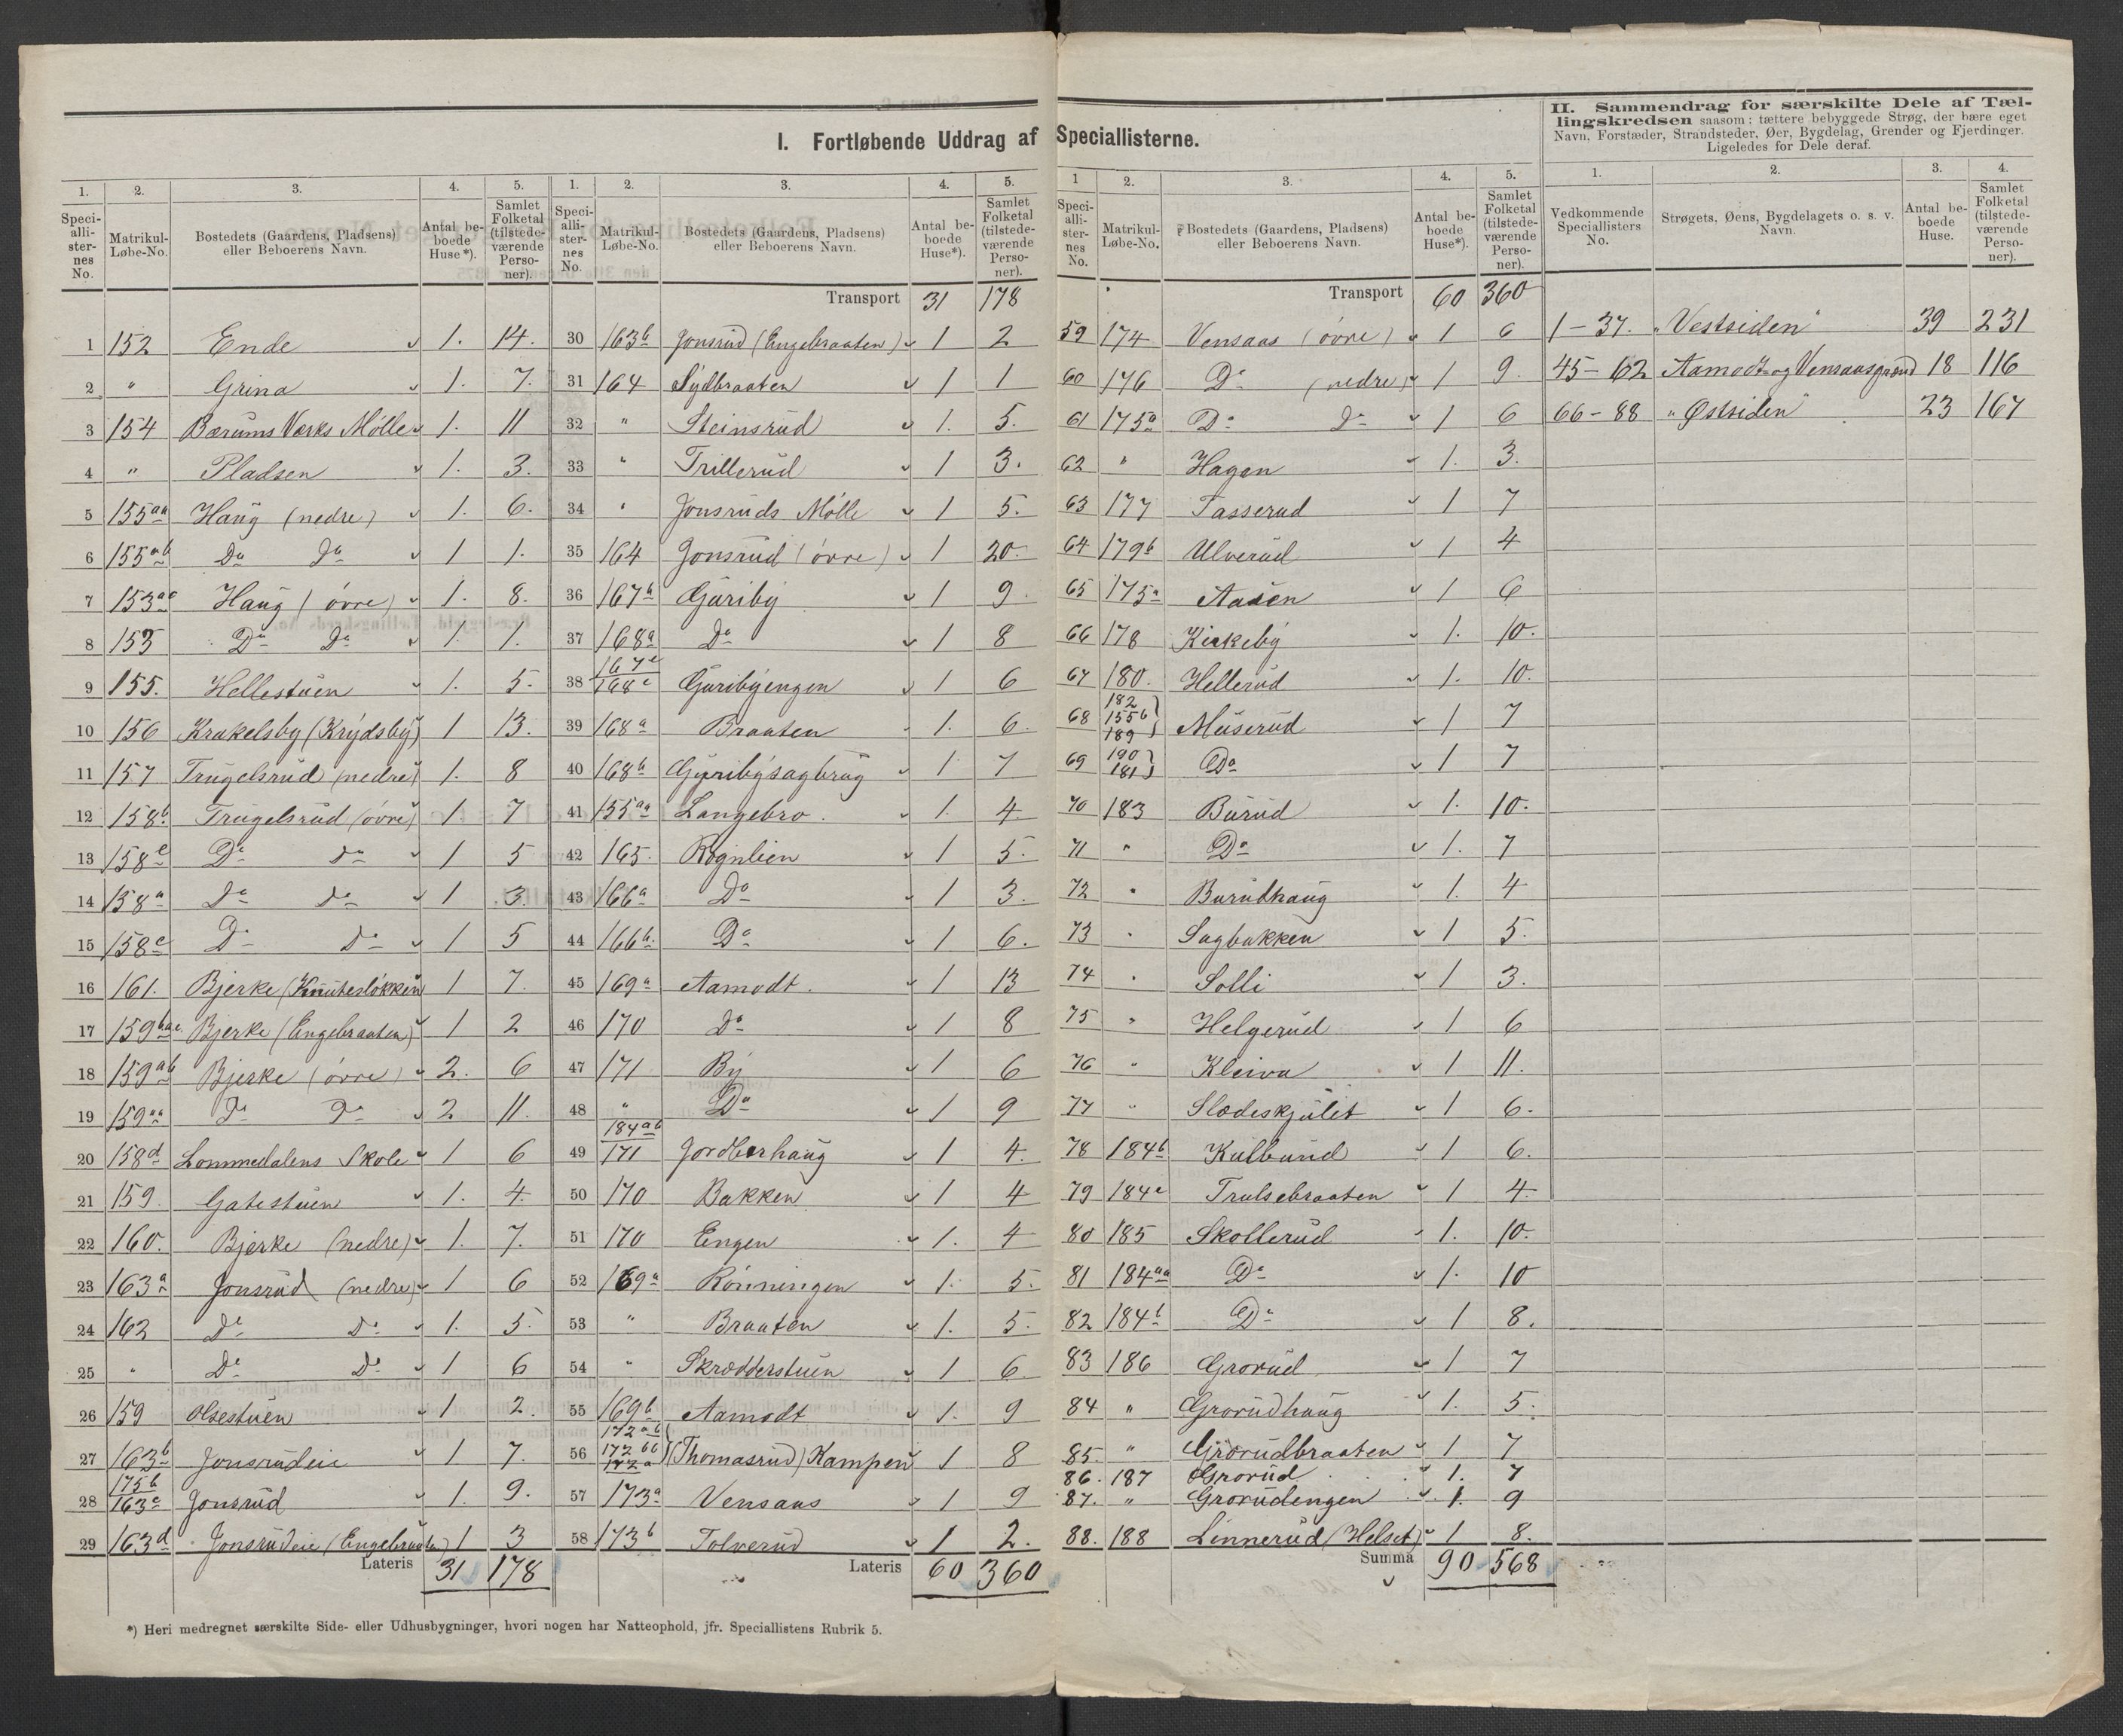 I. Fortløbende Uddrag af Speciallisterne.
II. Sammendrag for særskilte Dele af Tællingskredsen saasom: tættere bebyggede Strøg, der bære eget
Navn, Forstæder, Strandsteder, Øer, Bygdelag, Grender og Fjerdinger.
Ligeledes for Dele deraf.
1. 2. 3. 4. 5.
Speciallisternes No. Matrikul-Løbe-No. Bostedets (Gaardens, Pladsens) eller Beboerens Navn. Antal beboede Huse*). Samlet Folketal (tilstedeværende Personer).
1 152 Ende 1. 14.
2 " Grina 1. 7.
3 154 Bærums Værks Mølle 1. 11
4 " Pladsen 1. 3.
5 155aa Haug (nedre) 1. 6.
6 155ab Do Do 1 1.
7 153ac Haug (øvre) 1. 8.
8 153 Do Do 1. 1.
9 155. Hellestuen 1. 5.
10 156 Krakelsby (Krydsby) 1 13.
11 157 Trugelsrud (nedre) 1. 8
12 158b. Trugelsrud (øvre) 1 7
13 158c Do do 1 5
14 158a Do do 1 3.
15 158e Do Do 1 5
16 161. Bjerke (Knuteslökken 1 7.
17 159bac Bjerke (Engebraaten) 1 2
18 159ab Bjerke (øvre) 2. 6
19 159aa Do Do 2 11.
20 158d Lommedalens Skole 1 6
21 159. Gatestuen 1. 4.
22 160. Bjerke (nedre) 1. 7.
23 163a Jonsrud (nedre) 1 6
24 162 Do Do 1. 5.
25 " Do Do 1 6
26 159 Olsestuen 1 2.
27 163b Jonsrudeie 1 7.
28 175b 163c Jonsrud 1. 9.
29 163d Jonsrudeie (Engebraaten) 1 3
Lateris 31 178
1. 2. 3. 4. 5.
Speciallisternes No. Matrikul-Løbe-No. Bostedets (Gaardens, Pladsens) eller Beboerens Navn. Antal beboede Huse*). Samlet Folketal (tilstedeværende Personer).
Transport 31 178
30 163b Jonsrud (Engebraaten) 1 2
31 164 Sydbraaten 1 1
32 " Steinsrud 1. 5.
33 " Trillerud 1 3.
34 " Jonsruds Mølle 1 5.
35 164 Jonsrud (øvre) 1 20.
36 167b Guriby 1 9.
37 168a Do 1 8
38 167c 168c Guribyengen 1 6
39 168a Braaten 1. 6.
40 168b Guribysagbrug 1 7
41 155aa Langebro. 1. 4.
42 165. Rognlien 1 5.
43 166a Do 1 3.
44 166b. Do 1 6.
45 169a Aamodt. 1 13
46 170 Do 1 8
47 171 By 1 6
48 " Do 1 9
49 184ab 171 Jordbærhaug 1 4.
50 170 Bakken 1 4
51 170 Engen 1. 4
52 169a Rönningen 1. 5.
53 " Braaten 1. 5.
54 " Skrædderstuen 1 6
55 169b Aamodt 1. 9
56 172ab 172bb 172a (Thomasrud) Kampen 1 8
57 173a Vensaas 1 9
58 173b Tolverud 1 2.
Lateris 60 360
1 2. 3. 4. 5.
Speciallisternes No. Matrikul-Løbe-No. Bostedets (Gaardens, Pladsens) eller Beboerens Navn. Antal beboede Huse*). Samlet Folketal (tilstedeværende Personer).
Transport 60 360
59 174 Vensaas (øvre) 1 6
60 176 Do (nedre) 1 9.
61 175a Do Do 1 6
62 " Hagen 1. 3.
63 177 Tasserud 1 7
64 179b Ulverud 1 4
65 175a Aasen 1 6
66 178 Kirkeby 1. 10.
67 180. Hellerud 1. 10.
68 182 155b 189 Muserud 1 7
69 190 181 Do 1 7
70 183 Burud 1. 10.
71 " Do 1. 7
72 " Burudhaug 1. 4
73 " Sagbakken 1 5.
74 " Solli 1 3.
75 " Helgerud 1 6
76 " Kleiva 1 11.
77 " Slædeskjulet 1 6.
78 184b Kulbund 1 6.
79 184c Trulsebraaten 1 4.
80 185 Skollerud 1. 10.
81 184aa Do 1. 10
82 184b Do 1 8.
83 186 Grorud 1 7
84 " Grorudhaug 1. 5.
85. " Grorudbraaten 1 7
86. 187 Grorud 1. 7
87. " Grorudengen 1. 9
88. 188 Linnerud (Helset) 1 8.
Summa 90 568
1. 2. 3. 4.
Vedkommende Speciallisters No. Strøgets, Øens, Bygdelagets o. s. v. Navn. Antal beboede Huse. Samlet Folketal (tilstedeværende Personer).
1-37. "Vestsiden" 39 231
45-62 Aamodt- og Vensaasgrænd 18 116
66-88 "Østsiden" 23 167
*) Heri medregnet særskilte Side- eller Udhusbygninger, hvori nogen har Natteophold, jfr. Speciallistens Rubrik 5.